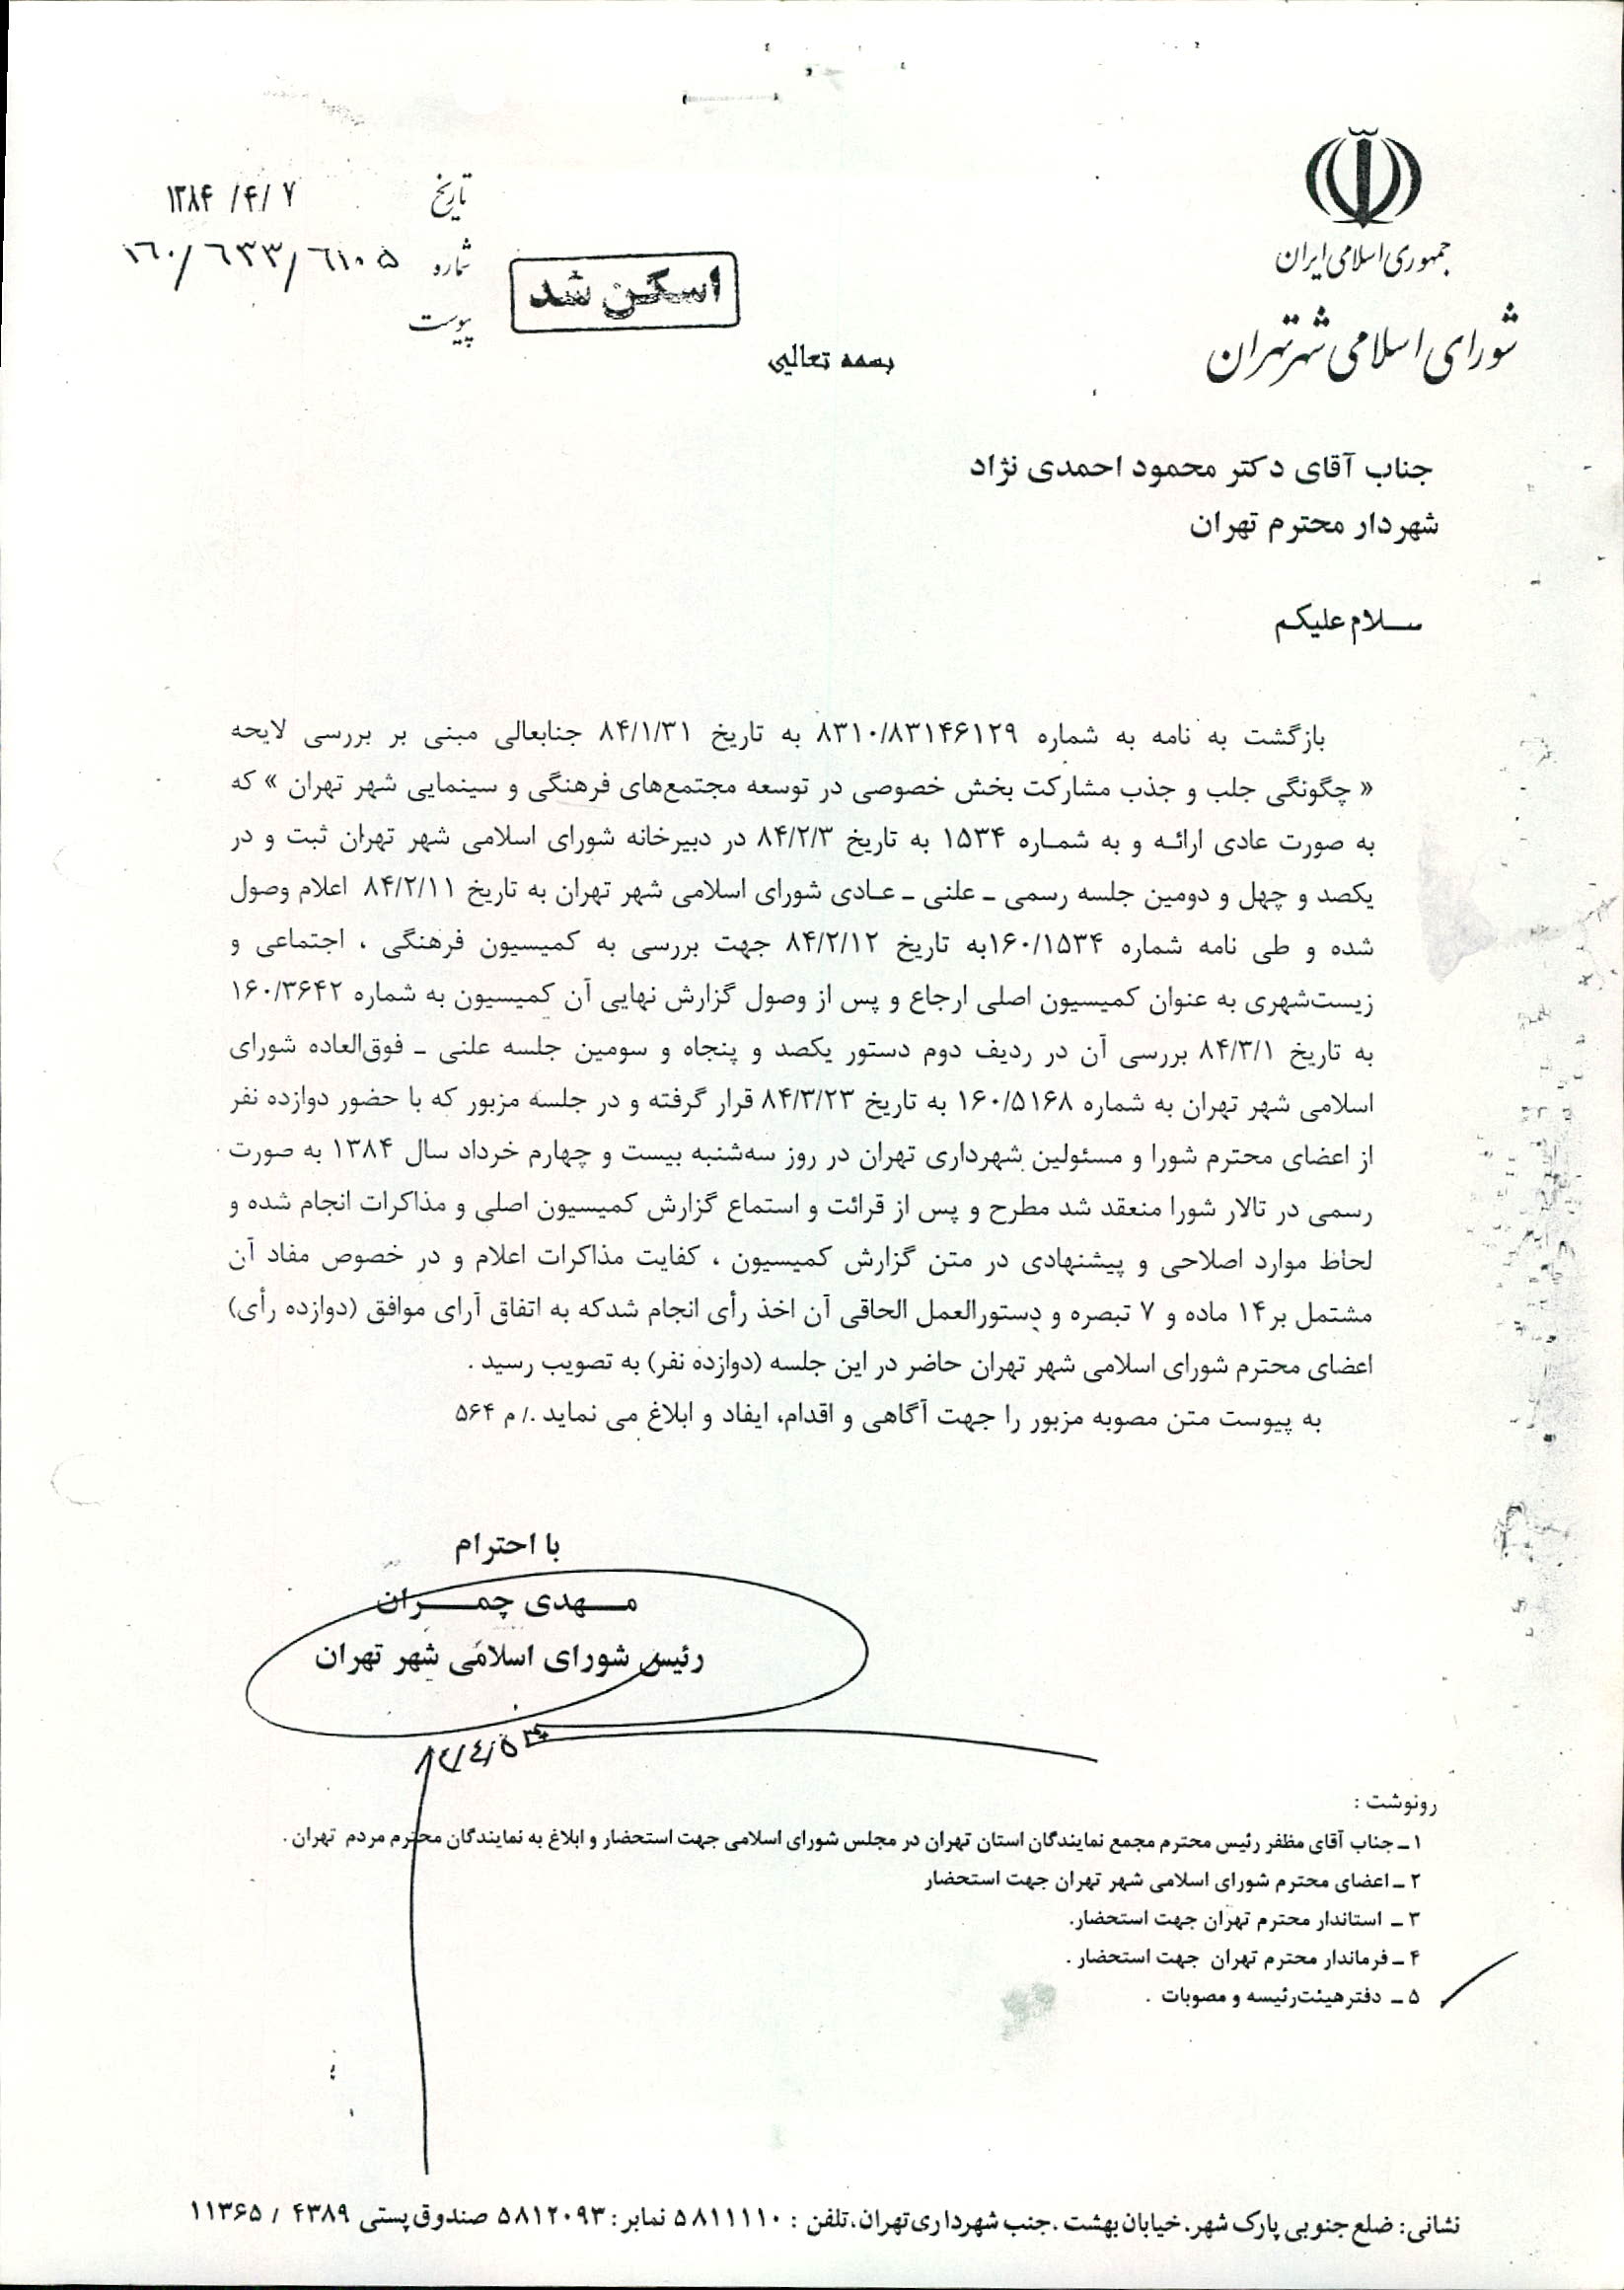 جمهوری اسلامی ایران
شورای اسلامی شهر تهران
تاریخ ۱۳۸۴/۴/۷
شماره ۱۶۰/۶۳۳/۶۱۰۵
پیوست
اسکن شد
بسمه تعالی
جناب آقای دکتر محمود احمدی نژاد
شهردار محترم تهران
سلام علیکم
بازگشت به نامه به شماره ۸۳۱۰/۸۳۱۴۶۱۲۹ به تاریخ ۸۴/۱/۳۱ جنابعالی مبنی بر بررسی لایحه
« چگونگی جلب و جذب مشارکت بخش خصوصی در توسعه مجتمع‌های فرهنگی و سینمایی شهر تهران » که
به صورت عادی ارائه و به شماره ۱۵۳۴ به تاریخ ۸۴/۲/۳ در دبیرخانه شورای اسلامی شهر تهران ثبت و در
یکصد و چهل و دومین جلسه رسمی ـ علنی ـ عادی شورای اسلامی شهر تهران به تاریخ ۸۴/۲/۱۱ اعلام وصول
شده و طی نامه شماره ۱۶۰/۱۵۳۴به تاریخ ۸۴/۲/۱۲ جهت بررسی به کمیسیون فرهنگی ، اجتماعی و
زیست‌شهری به عنوان کمیسیون اصلی ارجاع و پس از وصول گزارش نهایی آن کمیسیون به شماره ۱۶۰/۳۶۴۲
به تاریخ ۸۴/۳/۱ بررسی آن در ردیف دوم دستور یکصد و پنجاه و سومین جلسه علنی ـ فوق‌العاده شورای
اسلامی شهر تهران به شماره ۱۶۰/۵۱۶۸ به تاریخ ۸۴/۳/۲۳ قرار گرفته و در جلسه مزبور که با حضور دوازده نفر
از اعضای محترم شورا و مسئولین شهرداری تهران در روز سه‌شنبه بیست و چهارم خرداد سال ۱۳۸۴ به صورت
رسمی در تالار شورا منعقد شد مطرح و پس از قرائت و استماع گزارش کمیسیون اصلی و مذاکرات انجام شده و
لحاظ موارد اصلاحی و پیشنهادی در متن گزارش کمیسیون ، کفایت مذاکرات اعلام و در خصوص مفاد آن
مشتمل بر۱۴ ماده و ۷ تبصره و دستورالعمل الحاقی آن اخذ رأی انجام شدکه به اتفاق آرای موافق (دوازده رأی)
اعضای محترم شورای اسلامی شهر تهران حاضر در این جلسه (دوازده نفر) به تصویب رسید .
به پیوست متن مصوبه مزبور را جهت آگاهی و اقدام، ایفاد و ابلاغ می نماید ./ م ۵۶۴
با احترام
مهدی چمران
رئیس شورای اسلامی شهر تهران
رونوشت :
۱ ـ جناب آقای مظفر رئیس محترم مجمع نمایندگان استان تهران در مجلس شورای اسلامی جهت استحضار و ابلاغ به نمایندگان محترم مردم تهران .
۲ ـ اعضای محترم شورای اسلامی شهر تهران جهت استحضار
۳ ـ استاندار محترم تهران جهت استحضار.
۴ ـ فرماندار محترم تهران جهت استحضار .
۵ ـ دفتر هیئت‌رئیسه و مصوبات .
نشانی: ضلع جنوبی پارک شهر، خیابان بهشت ، جنب شهرداری تهران، تلفن : ۵۸۱۱۱۱۰ نمابر: ۵۸۱۲۰۹۳ صندوق پستی ۴۳۸۹ / ۱۱۳۶۵